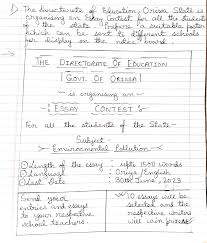 1) The Directorate of Education, Orissa State is
organising an Essay Contest for all the students
of the state. Prepare a suitable poster
which can be sent to different schools
for display on the notice board.
THE DIRECTORATE OF EDUCATION
GOVT. OF ORISSA
is organising an
ESSAY CONTEST
For all the students of the State
Subject -
Environmental Pollution
Length of the essay : upto 1500 words
Language : Oriya, English
Last Date : 30th June, 2023
Send your
entries and essays
to your respective
school teachers.
* 10 essays will be
selected and the
respective writers
will win prizes